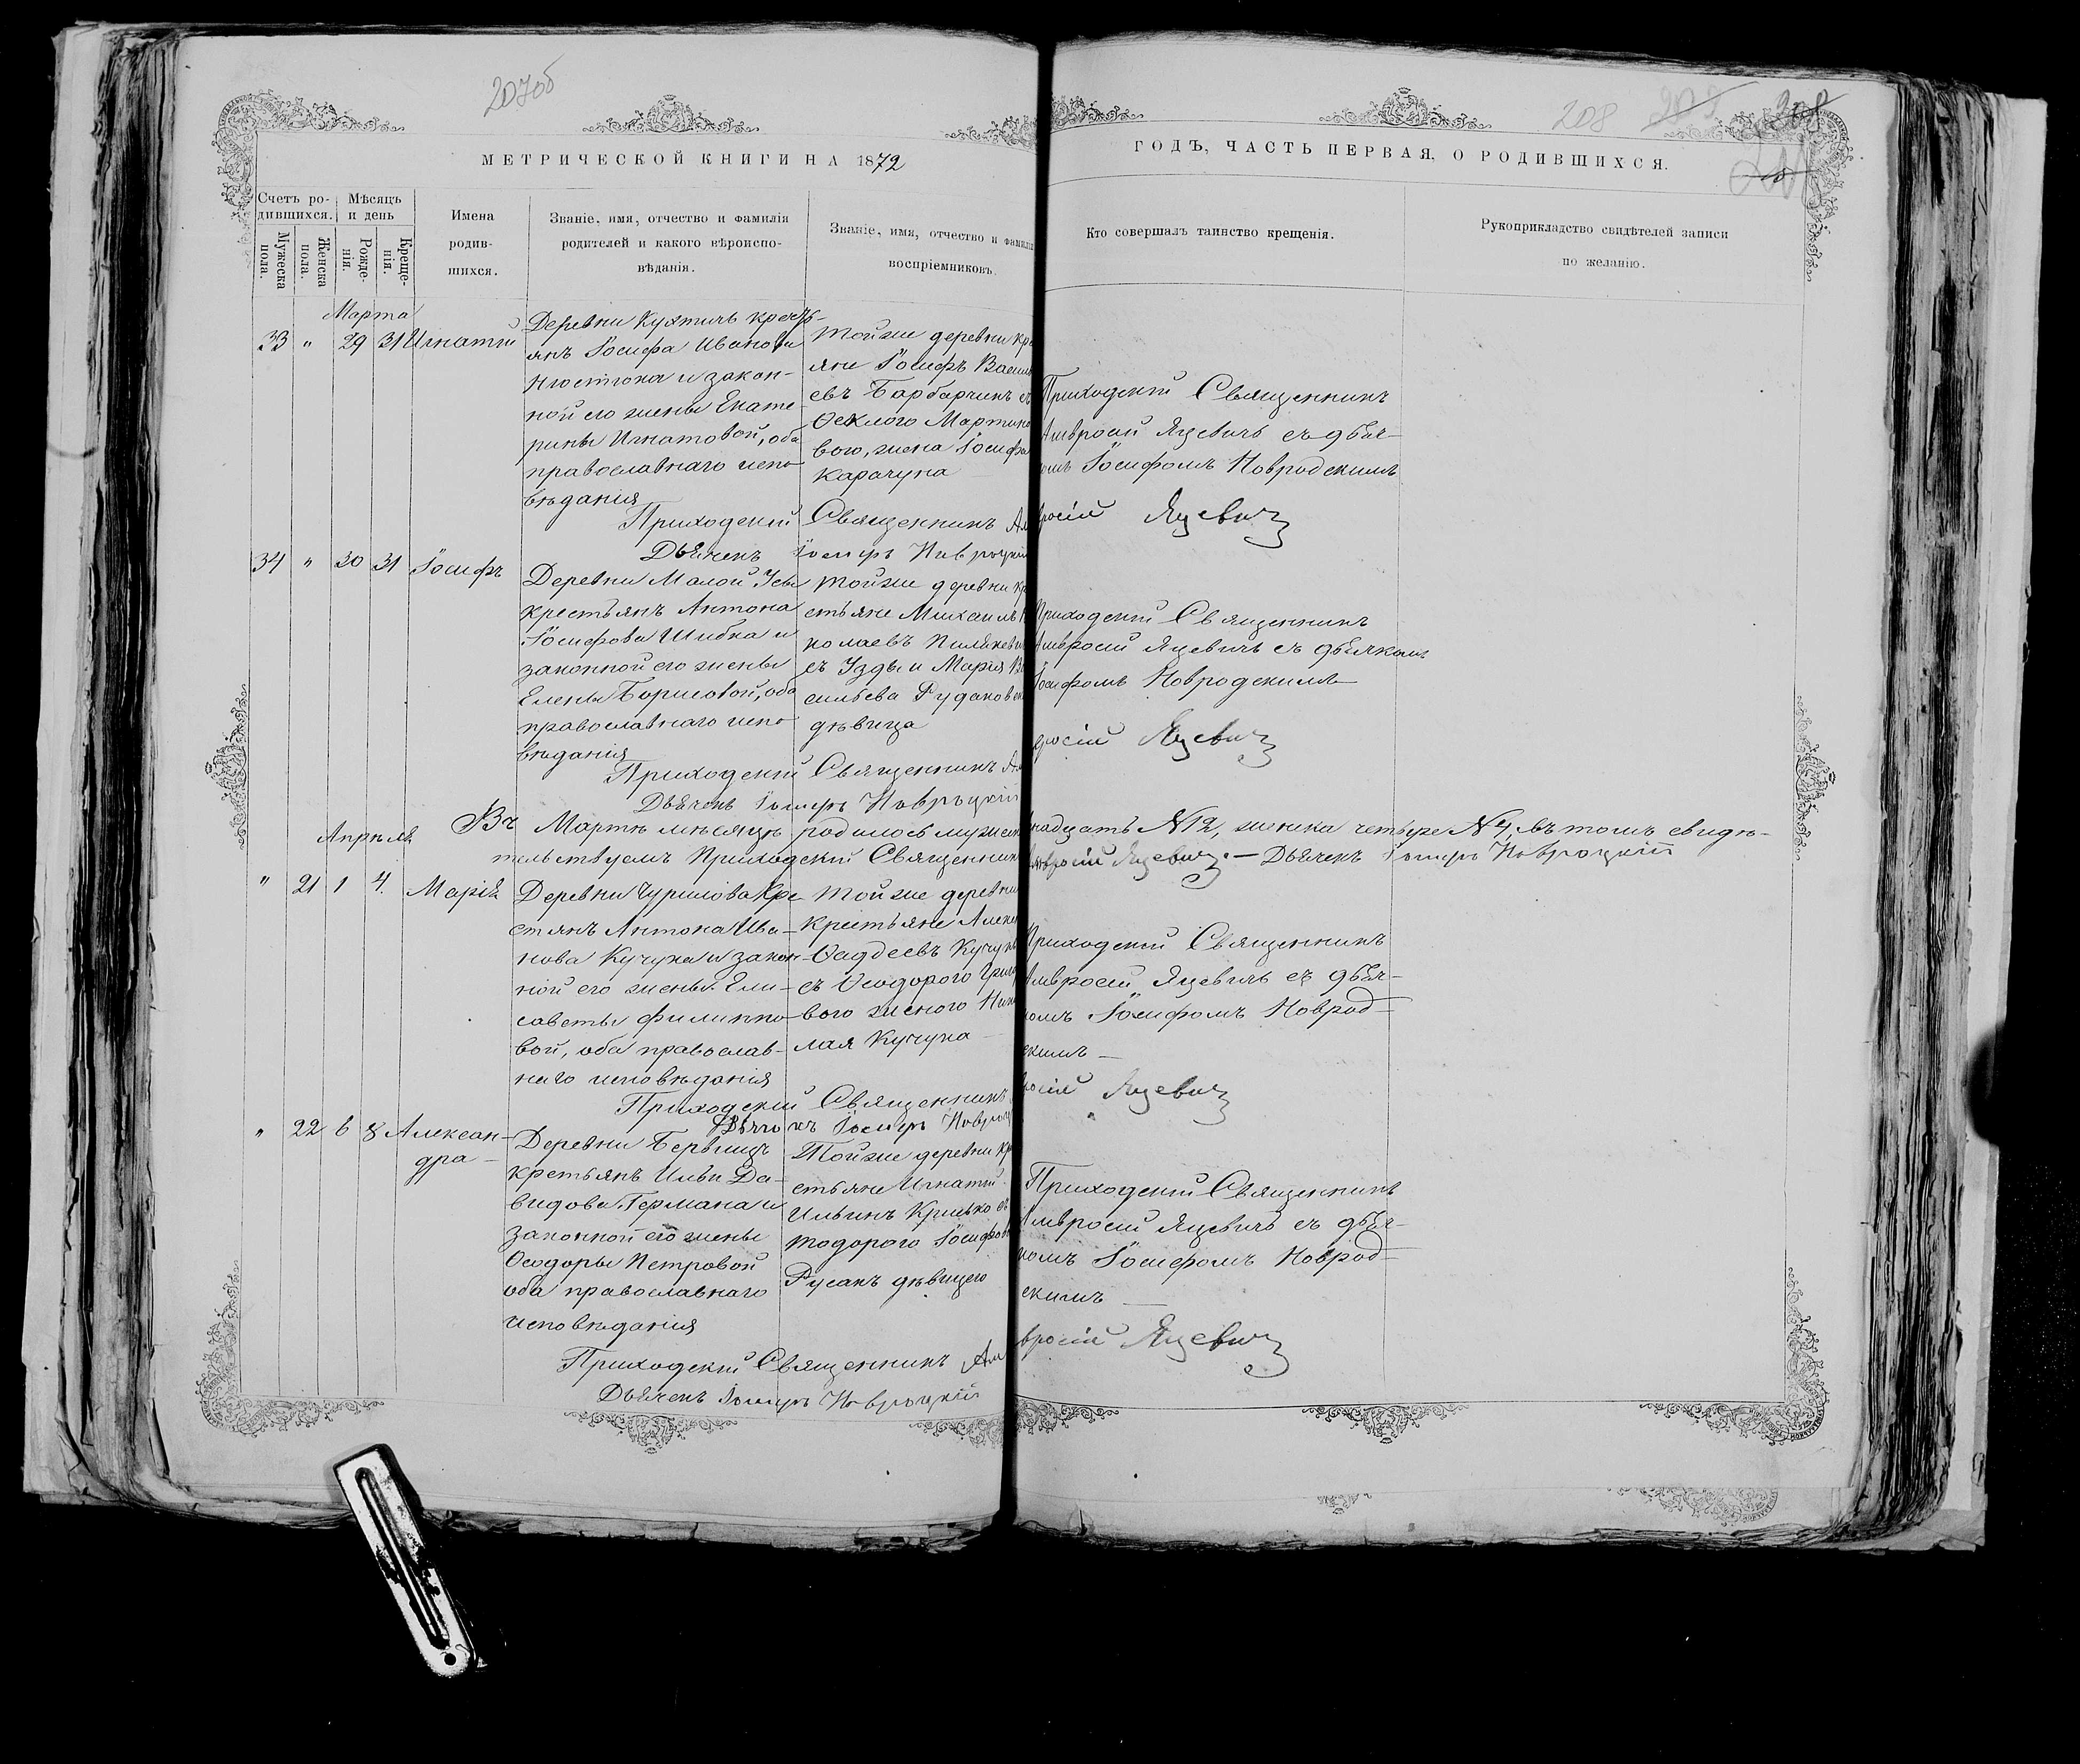 207об
208
МЕТРИЧЕСКОЙ КНИГИ НА 1872
ГОДЪ, ЧАСТЬ ПЕРВАЯ, О РОДИВШИХСЯ.
Счетъ родившихся.
Мужеска пола.
Женска пола.
Мѣсяцъ и день
Рожденія.
Крещенія.
Имена родившихся.
Званіе, имя, отчество и фамилія
родителей и какого вѣроиспо-
вѣданія.
Званіе, имя, отчество и фамилія
воспріемниковъ.
Кто совершалъ таинство крещенія.
Рукоприкладство свидѣтелей записи
по желанію.
Марта
33 " 29 31 Игнатій
Деревни Кухтичъ кресть-
янъ Іосифа Иванова
и закон-
ной его жены Екате-
рины Игнатовой, оба
православнаго испо-
вѣданія
Тойже деревни кре
яне Іосифъ Василь
евъ съ
Ѳеклою Мартино
вою, жена Іосифа
Карачуна
Приходскій Священникъ
Амвросій Яцевичъ съ дьяч-
омъ Іосифомъ Новродскимъ
Приходскій Священникъ Ам
вросій Яцевичъ
Дьячекъ Іосифъ Новроцкій
34 " 30 31 Іосифъ
Деревни Малой Усы
крестьянъ Антона
Іосифова Шибка и
законной его жены
Елены Борисовой, оба
православнаго испо
вѣданія
Тойже деревни кр
естьяне Михаилъ Н
колаевъ
съ Узды и Марія Ва
сильева Рудаковск
дѣвица
Приходскій Священникъ
Амвросій Яцевичъ съ дьячкомъ
Іосифомъ Новродскимъ
Приходскій Священникъ Ам
вросій Яцевичъ
Дьячекъ Іосифъ Новроцкій
Въ Мартѣ мѣсяцѣ родилось мужеск
надцать №12, женска четыре №4, въ томъ свидѣ-
тельствуемъ Приходскій Священникъ
Амвросій Яцевичъ. — Дьячекъ Іосифъ Новроцкій
Апрѣля
" 21 1 4. Марія
Деревни Чурилова Кре
стянъ Антона Ива-
нова Кучука и закон-
ной его жены Ели-
саветы Филиппо-
вой, оба православ-
наго исповѣданія
Тойже деревни
крестьяне Алекс
Ѳаддеевъ Кучукъ
съ Ѳеодорою Григ
вою женою Нико
лая Кучука
Приходскій Священникъ
Амвросій Яцевичъ съ дьяч-
комъ Іосифомъ Новрод-
скимъ —
Приходскій Священникъ
росій Яцевичъ
Дьячекъ Іосифъ Новроц
" 22 6 8 Алексан-
дра —
Деревни
крестьянъ Ильи Да-
видова Германа и
законной его жены
Ѳеодоры Петровой
оба православнаго
исповѣданія
Тойже деревни кр
естьяне Игнатій
Ильинъ съ
Тодорою Іосифов
Русакъ дѣвицею
Приходскій Священникъ
Амвросій Яцевичъ съ дьяч-
комъ Іосифомъ Новрод-
скимъ —
Приходскій Священникъ Ам
вросій Яцевичъ
Дьячекъ Іосифъ Новроцкій